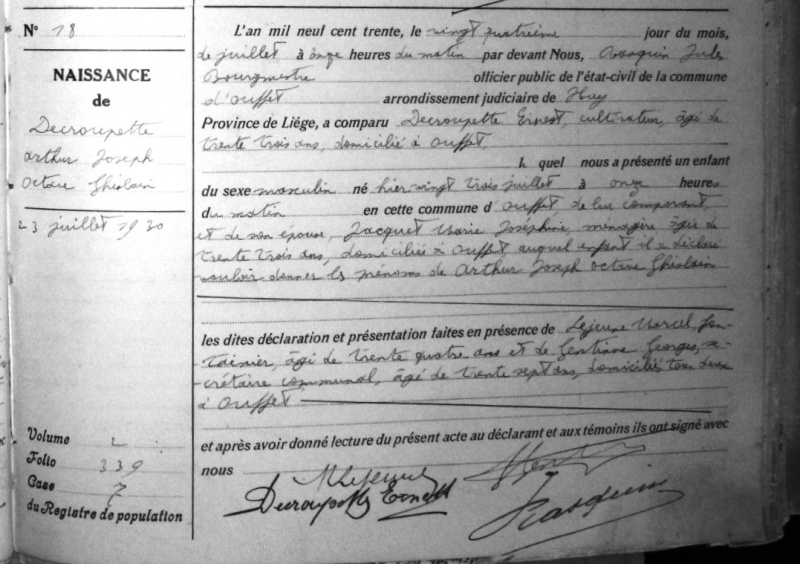 N° 18
NAISSANCE
de
Decroupette
Arthur Joseph
Octave Ghislain
23 juillet 1930
Volume 2
Folio 339
Case 7
du Registre de population
L'an mil neuf cent trente, le vingt quatrième jour du mois,
de juillet à onze heures du matin par devant Nous, Rasquin Jules
Bourgmestre officier public de l'état-civil de la commune
d'Ouffet arrondissement judiciaire de Huy
Province de Liége, a comparu Decroupette Ernest, cultivateur, âgé de
trente trois ans, domicilié à Ouffet,
lequel nous a présenté un enfant
du sexe masculin né hier vingt trois juillet à onze heures
du matin en cette commune d'Ouffet de lui comparant,
et de son épouse, Jacquet Marie Joséphine, ménagère, âgée de
trente trois ans, domiciliée à Ouffet, auquel enfant il a déclaré
vouloir donner les prénoms de Arthur Joseph Octave Ghislain
les dites déclaration et présentation faites en présence de Lejeune Marcel, fon-
tainier, âgé de trente quatre ans et de Gentiane Georges, se-
crétaire communal, âgé de trente sept ans, domiciliés tous deux
à Ouffet
et après avoir donné lecture du présent acte au déclarant et aux témoins ils ont signé avec
nous
M Lejeune
Decroupette Ernest
Rasquin